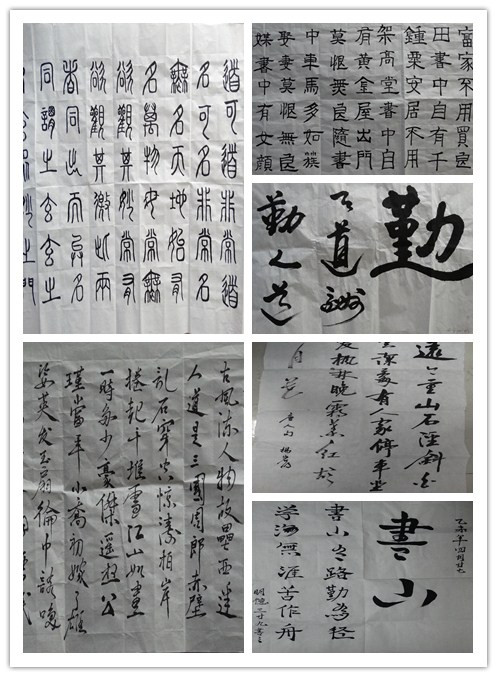 道可道非常道
名可名非常名
無名天地始有
名萬物母常無
欲觀其妙常有
欲觀其徼此兩
者同出而異名
同謂之玄之
又玄眾妙之門
富家不用買良
田書中自有千
鍾粟安居不用
架高堂書中自
有黃金屋出門
莫恨無良隨書
中車馬多如簇
娶妻莫恨無良
媒書中有女顏
勤
天道酬
勤人道
古風流人物故壘西邊
人道是三國周郎赤壁
亂石穿空驚濤拍岸
捲起千堆雪江山如畫
一時多少豪傑遙想公
瑾當年小喬初嫁了雄
姿英發羽扇綸巾談笑
遠上寒山石徑斜白
雲深處有人家停車坐
愛楓林晚霜葉紅於
月花 唐人句
乙未年四月廿七
書山
書山有路勤為徑
學海無涯苦作舟